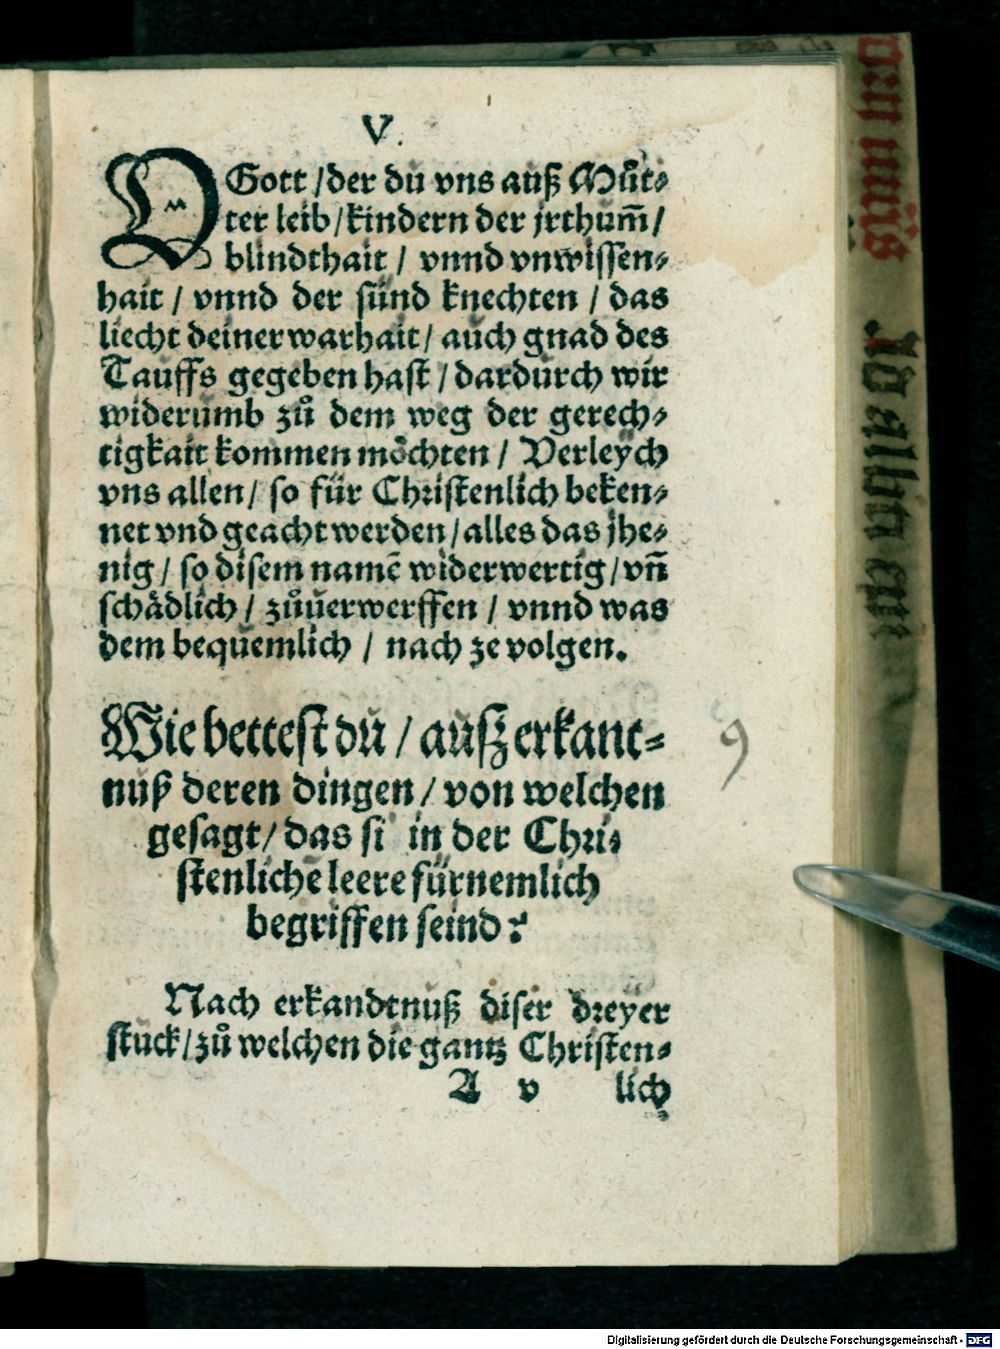 V.
O Gott / der du vns auß Můt⸗
ter leib / kindern der jrthum̃ /
blindthait / vnnd vnwissen⸗
hait / vnnd der sünd knechten / das
liecht deiner warhait / auch gnad des
Tauffs gegeben hast / dardurch wir
widerumb zů dem weg der gerech⸗
tigkait kommen möchten / Verleych
vns allen / so für Christenlich beken⸗
net vnd geacht werden / alles das jhe⸗
nig / so disem namẽ widerwertig / vñ
schädlich / zůuerwerffen / vnnd was
dem bequemlich / nach ze volgen.
Wie bettest du / ausz erkant⸗
nuß deren dingen / von welchen
gesagt / das si in der Chri⸗
stenlichẽ leere fürnemlich
begriffen seind?
9
Nach erkandtnuß diser dreyer
stuck / zů welchen die gantz Christen⸗
A v lich
Digitalisierung gefördert durch die Deutsche Forschungsgemeinschaft - DFG